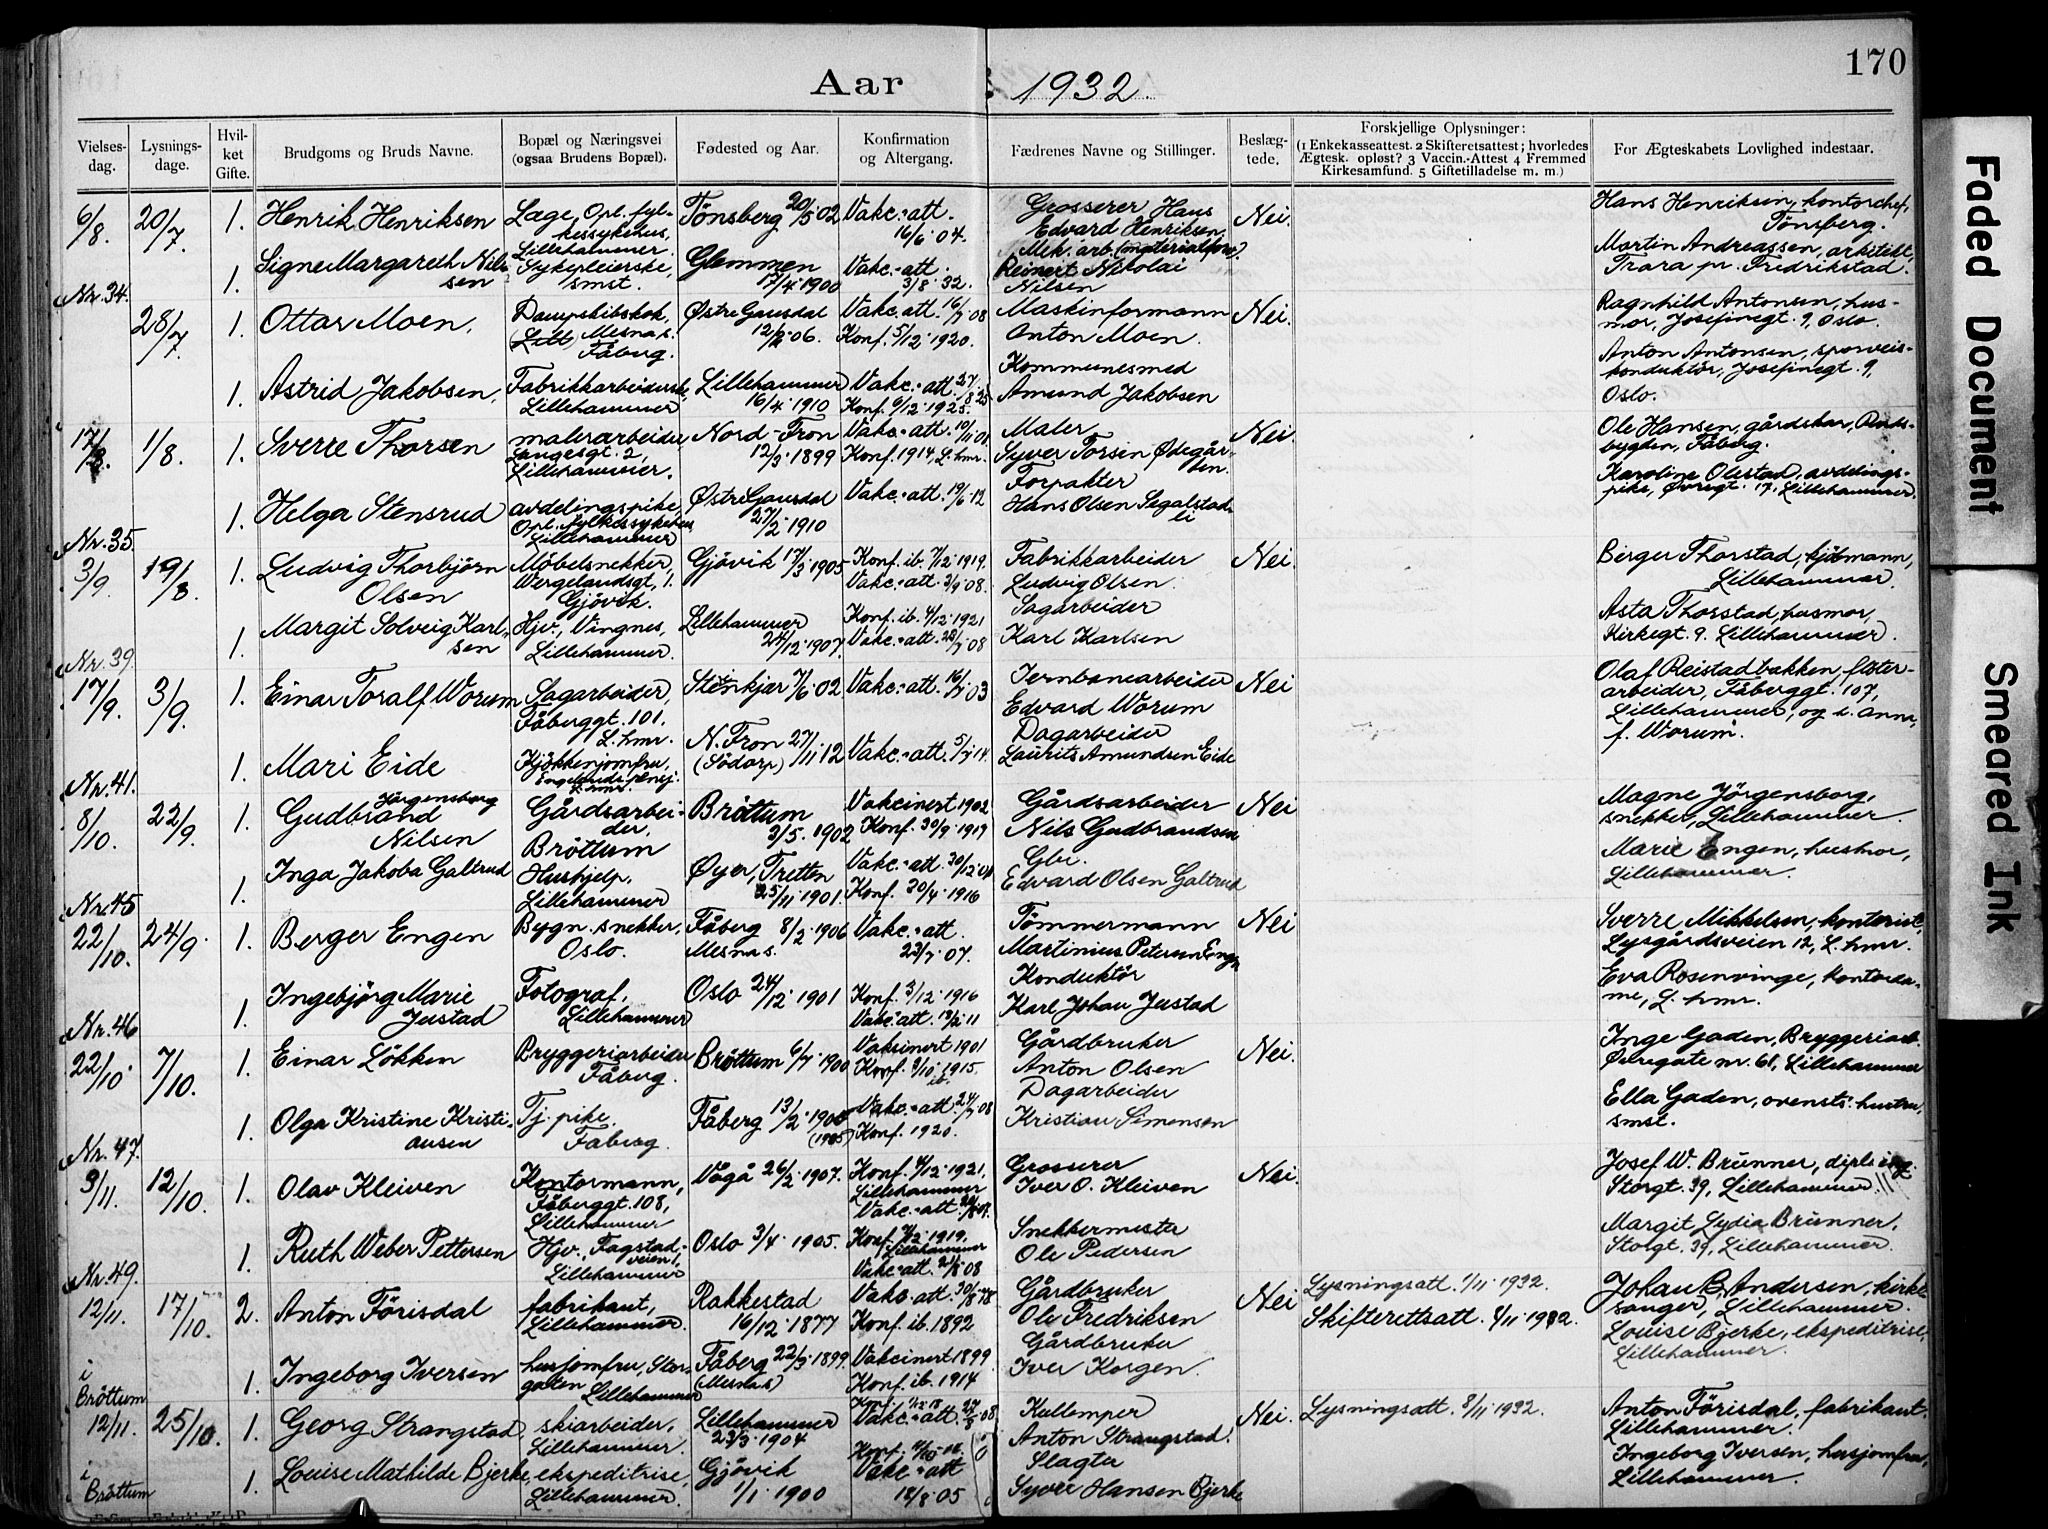 170
Aar 1932.
Vielses-dag.
Lysnings-dage.
Hvil-ket Gifte.
Brudgoms og Bruds Navne.
Bopæl og Næringsvei (ogsaa Brudens Bopæl).
Fødested og Aar.
Konfirmation og Altergang.
Fædrenes Navne og Stillinger.
Beslæg-tede.
Forskjellige Oplysninger:
(1 Enkekasseattest. 2 Skifteretsattest; hvorledes
Ægtesk. opløst? 3 Vaccin.-Attest 4 Fremmed
Kirkesamfund. 5 Giftetilladelse m. m.)
For Ægteskabets Lovlighed indestaar.
6/8. 20/7 1. Henrik Henriksen
Læge, Opl. fyl-
kessykehus,
Lillehammer
Tønsberg 20/5 02
Vakc.-att.
16/6 04.
Grosserer Hans
Edvard Henriksen,
Nei.
Hans Henriksen, kontorchef,
Tønsberg.
1. Signe Margareth Nil-
sen
Sykepleierske,
smst.
Glemmen
17/4 1900
Vakc.-att.
3/8 32.
Mek. arb. (materialforv.)
Reinert Nikolai
Nilsen
Martin Andreassen, arkitekt,
Trara pr. Fredrikstad.
Nr. 34.
28/7. 1. Ottar Moen.
Dampskibskok,
(Lill) Mesna s.
Fåberg.
Østre Gausdal
12/2 06.
Vakc. att. 16/7 08
Konf. 5/12 1920.
Maskinformann
Anton Moen.
Nei.
Ragnhild Antonsen, hus-
mor, Josefinegt. 9, Oslo.
1. Astrid Jakobsen,
Fabrikkarbeiderske
Lillehammer
Lillehammer
16/4 1910
Vakc.-att. 27/8 25
Konf. 6/12 1925.
Kommunesmed
Amund Jakobsen
Anton Antonsen, sporveis-
konduktør, Josefinegt. 9,
Oslo.
17/8. 1/8. 1. Sverre Thorsen
malerarbeider,
Langesgt. 2,
Lillehammer.
Nord-Fron
12/3 1899
Vakc.-att. 10/11 01.
Konf. 1914, L.hmr.
Maler
Syver Torsen Ødegår-
den.
Nei.
Ole Hansen, gårdskar, Rinds-
bygden, Fåberg.
1. Helga Stensrud
avdelingspike,
Opl. fylkessykehus,
Lillehammer
Østre Gausdal
27/2 1910
Vakc.-att. 19/6 12
Forpakter
Hans Olsen Segalstad-
li
Karoline Olestad, avdelings-
pike, Øvregt. 17, Lillehammer.
Nr. 35.
3/9. 19/8. 1. Ludvig Thorbjörn
Olsen
Möbelsnekker,
Wergelandsgt. 1.
Gjövik.
Gjövik 17/3 1905
Konf. ib. 7/12 1919.
Vakc.-att. 3/9 08.
Fabrikkarbeider
Ludvig Olsen.
Nei.
Birger Thorstad, kjöbmann,
Lillehammer.
1. Margit Solveig Karl-
sen
Hjv., Vingnes,
Lillehammer.
Lillehammer
24/12 1907.
Konf. ib. 4/12 1921
Vakc.-att. 28/7 08
Sagarbeider
Karl Karlsen
Asta Thorstad, husmor,
Kirkegt. 9. Lillehammer.
Nr. 39.
17/9. 3/9. 1. Einar Toralf Worum
Sagarbeider,
Fåberggt. 101.
L.hmr.
Stenkjær 7/6 02
Vakc.-att. 16/7 03
Jernbanearbeider
Edvard Worum
Nei
Olaf Reistadbakken, fløter-
arbeider, Fåberggt. 107,
Lillehammer, og i. anm.
f. Worum.
1. Mari Eide
Kjökkenjomfru,
L.hmr.
N. Fron 27/11 12
(Södorp)
Vakc.-att. 5/7 14.
Dagarbeider
Laurits Amundsen Eide
Nr. 41.
8/10. 22/9. 1. Gudbrand Jörgensborg
Nilsen
Gårdsarbei-
der,
Bröttum
Bröttum
3/5 1902
Vakcinert 1902
Konf. 30/9 1917
Gårdsarbeider
Nils Gudbrandsen
Nei
Magne Jörgensborg,
snekker, Lillehammer.
1. Inga Jakoba Galtrud
Hushjelp,
Lillehammer
Øyer, Tretten
25/11 1901.
Vakc.-att. 30/12 01
Konf. 30/4 1916
Gbr.
Edvard Olsen Galtrud
Marie Engen, husmor,
Lillehammer.
Nr. 45
22/10. 24/9. 1. Berger Engen
Bygn. snekker,
Oslo.
Fåberg 8/2 1906
Mesna s.
Vakc.-att.
23/7 07.
Tömmermann
Martinius Petersen Engen
Nei
Sverre Mikkelsen, kontorist,
Lysgårdsveien 12, L.hmr.
1. Ingebjörg Marie
Justad
Fotograf,
Lillehammer
Oslo 24/12 1901
Konf. 3/12 1916
Vakc. att. 13/2 11
Konduktör
Karl Johan Justad
Eva Rosenvinge, kontorda-
me, L.hmr.
Nr. 46
22/10. 7/10. 1. Einar Lökken
Bryggeriarbeider
Fåberg.
Bröttum 6/7 1900
Vaksinert 1901
Konf. 3/10 1915.
ib.
Gårdbruker
Anton Olsen
Nei.
Inge Gaden, Bryggeriarb.
Øvregate nr. 61, Lillehammer
1. Olga Kristine Kristi-
ansen
Tj. pike.
Fåberg.
Fåberg 13/2 1900
(1905)
Vakc.-att. 24/7 08
Konf. 1920.
Dagarbeider
Kristian Simensen
Ella Gaden, ovensts. hustru,
smst.
Nr. 47.
3/11. 12/10. 1. Olav Kleiven
Kontormann,
Fåberggt. 108,
Lillehammer
Vågå 26/2 1907.
Konf. 4/12 1921,
Lillehammer
Vakc.-att.
Grosserer
Iver O. Kleiven
Nei.
Josef W. Brünner, dipl. ing.
Storgt. 39, Lillehammer.
1. Ruth Weber Pettersen
Hjv., Fagstad-
veien 1,
Lillehammer
Oslo 3/4 1905.
Konf. 7/12 1919,
Lillehammer
Vakc.-att. 21/8 08
Snekkermester
Ole Pedersen
Margit Lydia Brünner,
Storgt. 39, Lillehammer.
Nr. 49.
12/11. 17/10. 2. Anton Förisdal
fabrikant,
Lillehammer.
Rakkestad
16/12 1877
Vakc-att. 30/8 78
Konf. ib. 1892
Gårdbruker
Ole Fredriksen
Nei
Lysningsatt. 1/11 1932.
Skifterettsatt. 9/11 1932.
Johan B. Andersen, kirke-
sanger, Lillehammer.
1. Ingeborg Iversen
husjomfru, Stor-
gaten Lillehammer
Fåberg 22/3 1899
(Mesna s)
Vakcinert 1899
Konf. ib. 1914
Gårdbruker
Iver Korgen.
Louise Bjerke, ekspeditrise,
Lillehammer.
i
Bröttum
12/11. 25/10. 1. Georg Strangstad,
skiarbeider,
Lillehammer.
Lillehammer
23/3 1904
Konf. 1/12 18
Vakc.-att. 27/8 08
Anton Strangstad.
Nei.
Lysningsatt. 8/11 1932.
Anton Förisdal, fabrikant,
Lillehammer.
1. Louise Mathilde Bjerke,
ekspeditrise,
Lillehammer.
Gjövik
1/1 1900
Vakc.-att
18/8 05
Slagter
Syver Hansen Bjerke
Ingeborg Iversen, husjomfru,
Lillehammer.
i
Bröttum
Faded Document
Smeared Ink